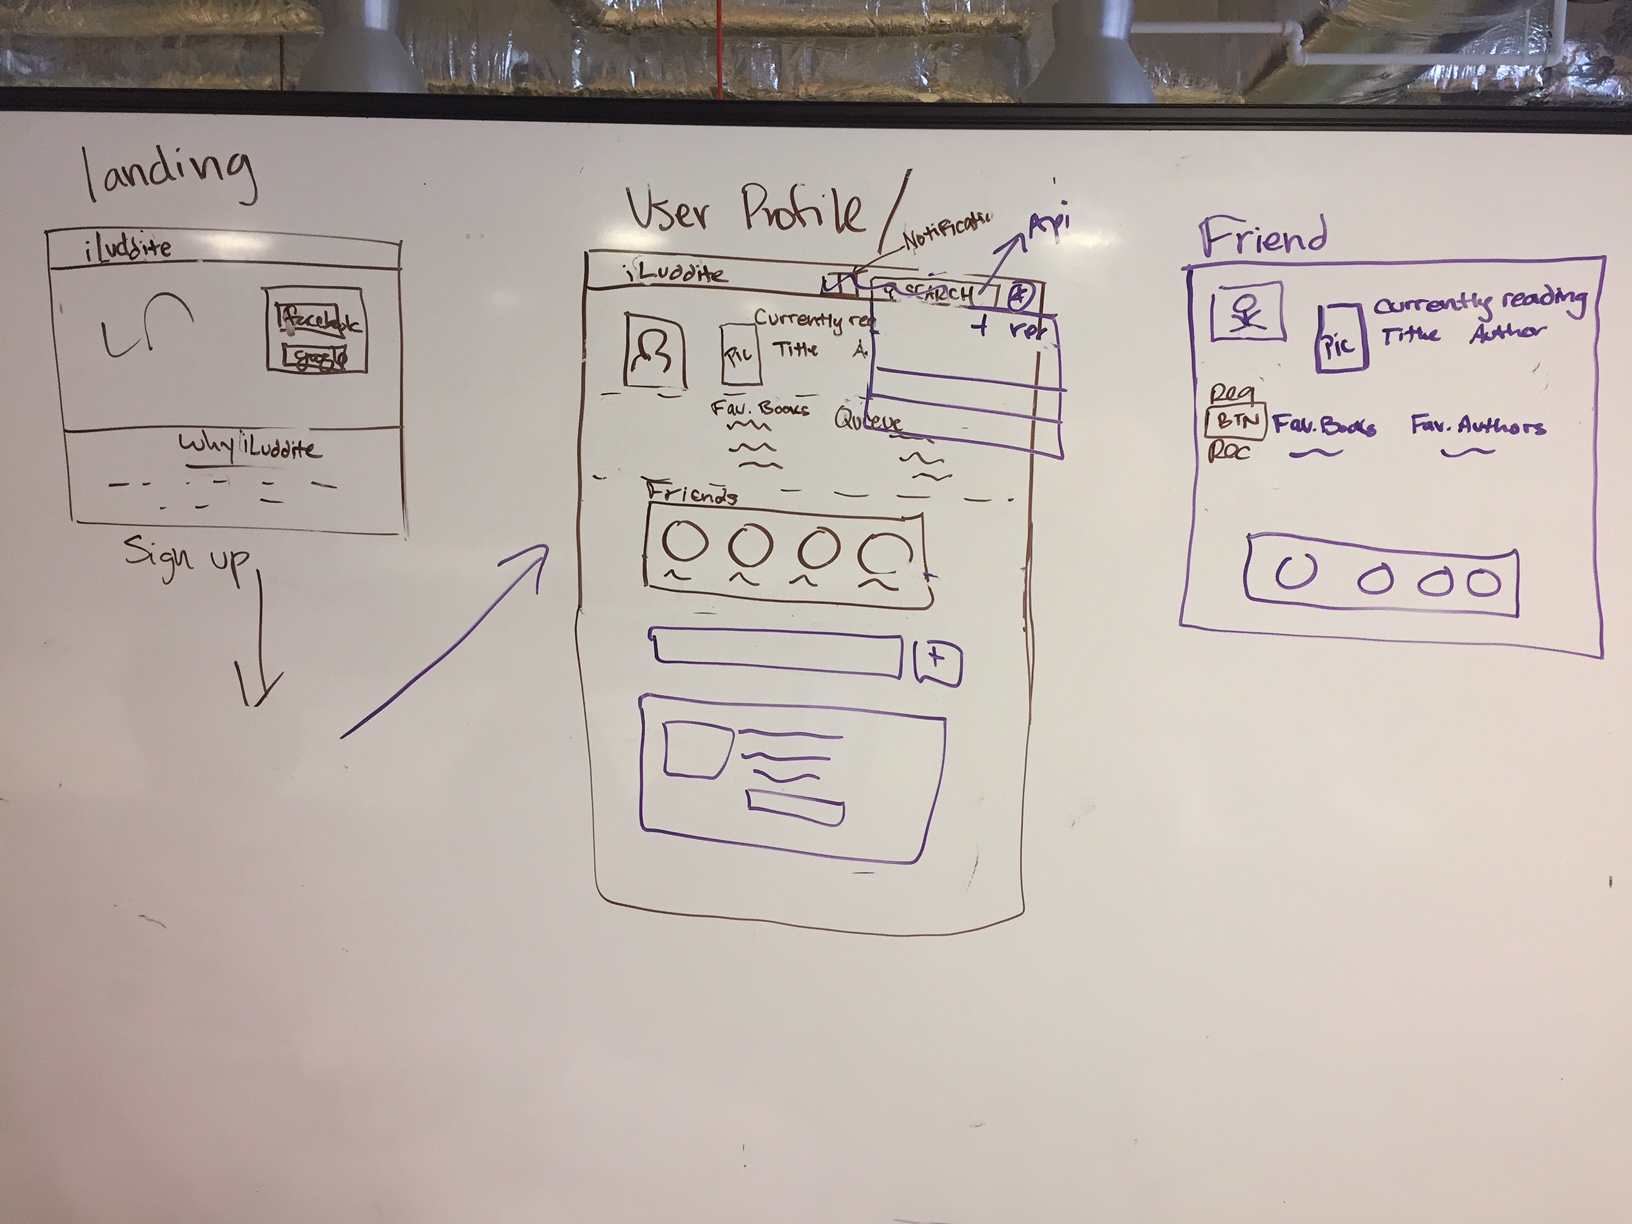 landing
iLuddite
facebook
google
Why iLuddite
Sign up
User Profile /
Notificatio
Api
iLuddite
SEARCH
+
Currently rea
Pic
Title A.
Fav. Books
Queue
Friends
+
Friend
Currently reading
Pic
Title Author
Req
BTN
Rec
Fav. Books Fav. Authors